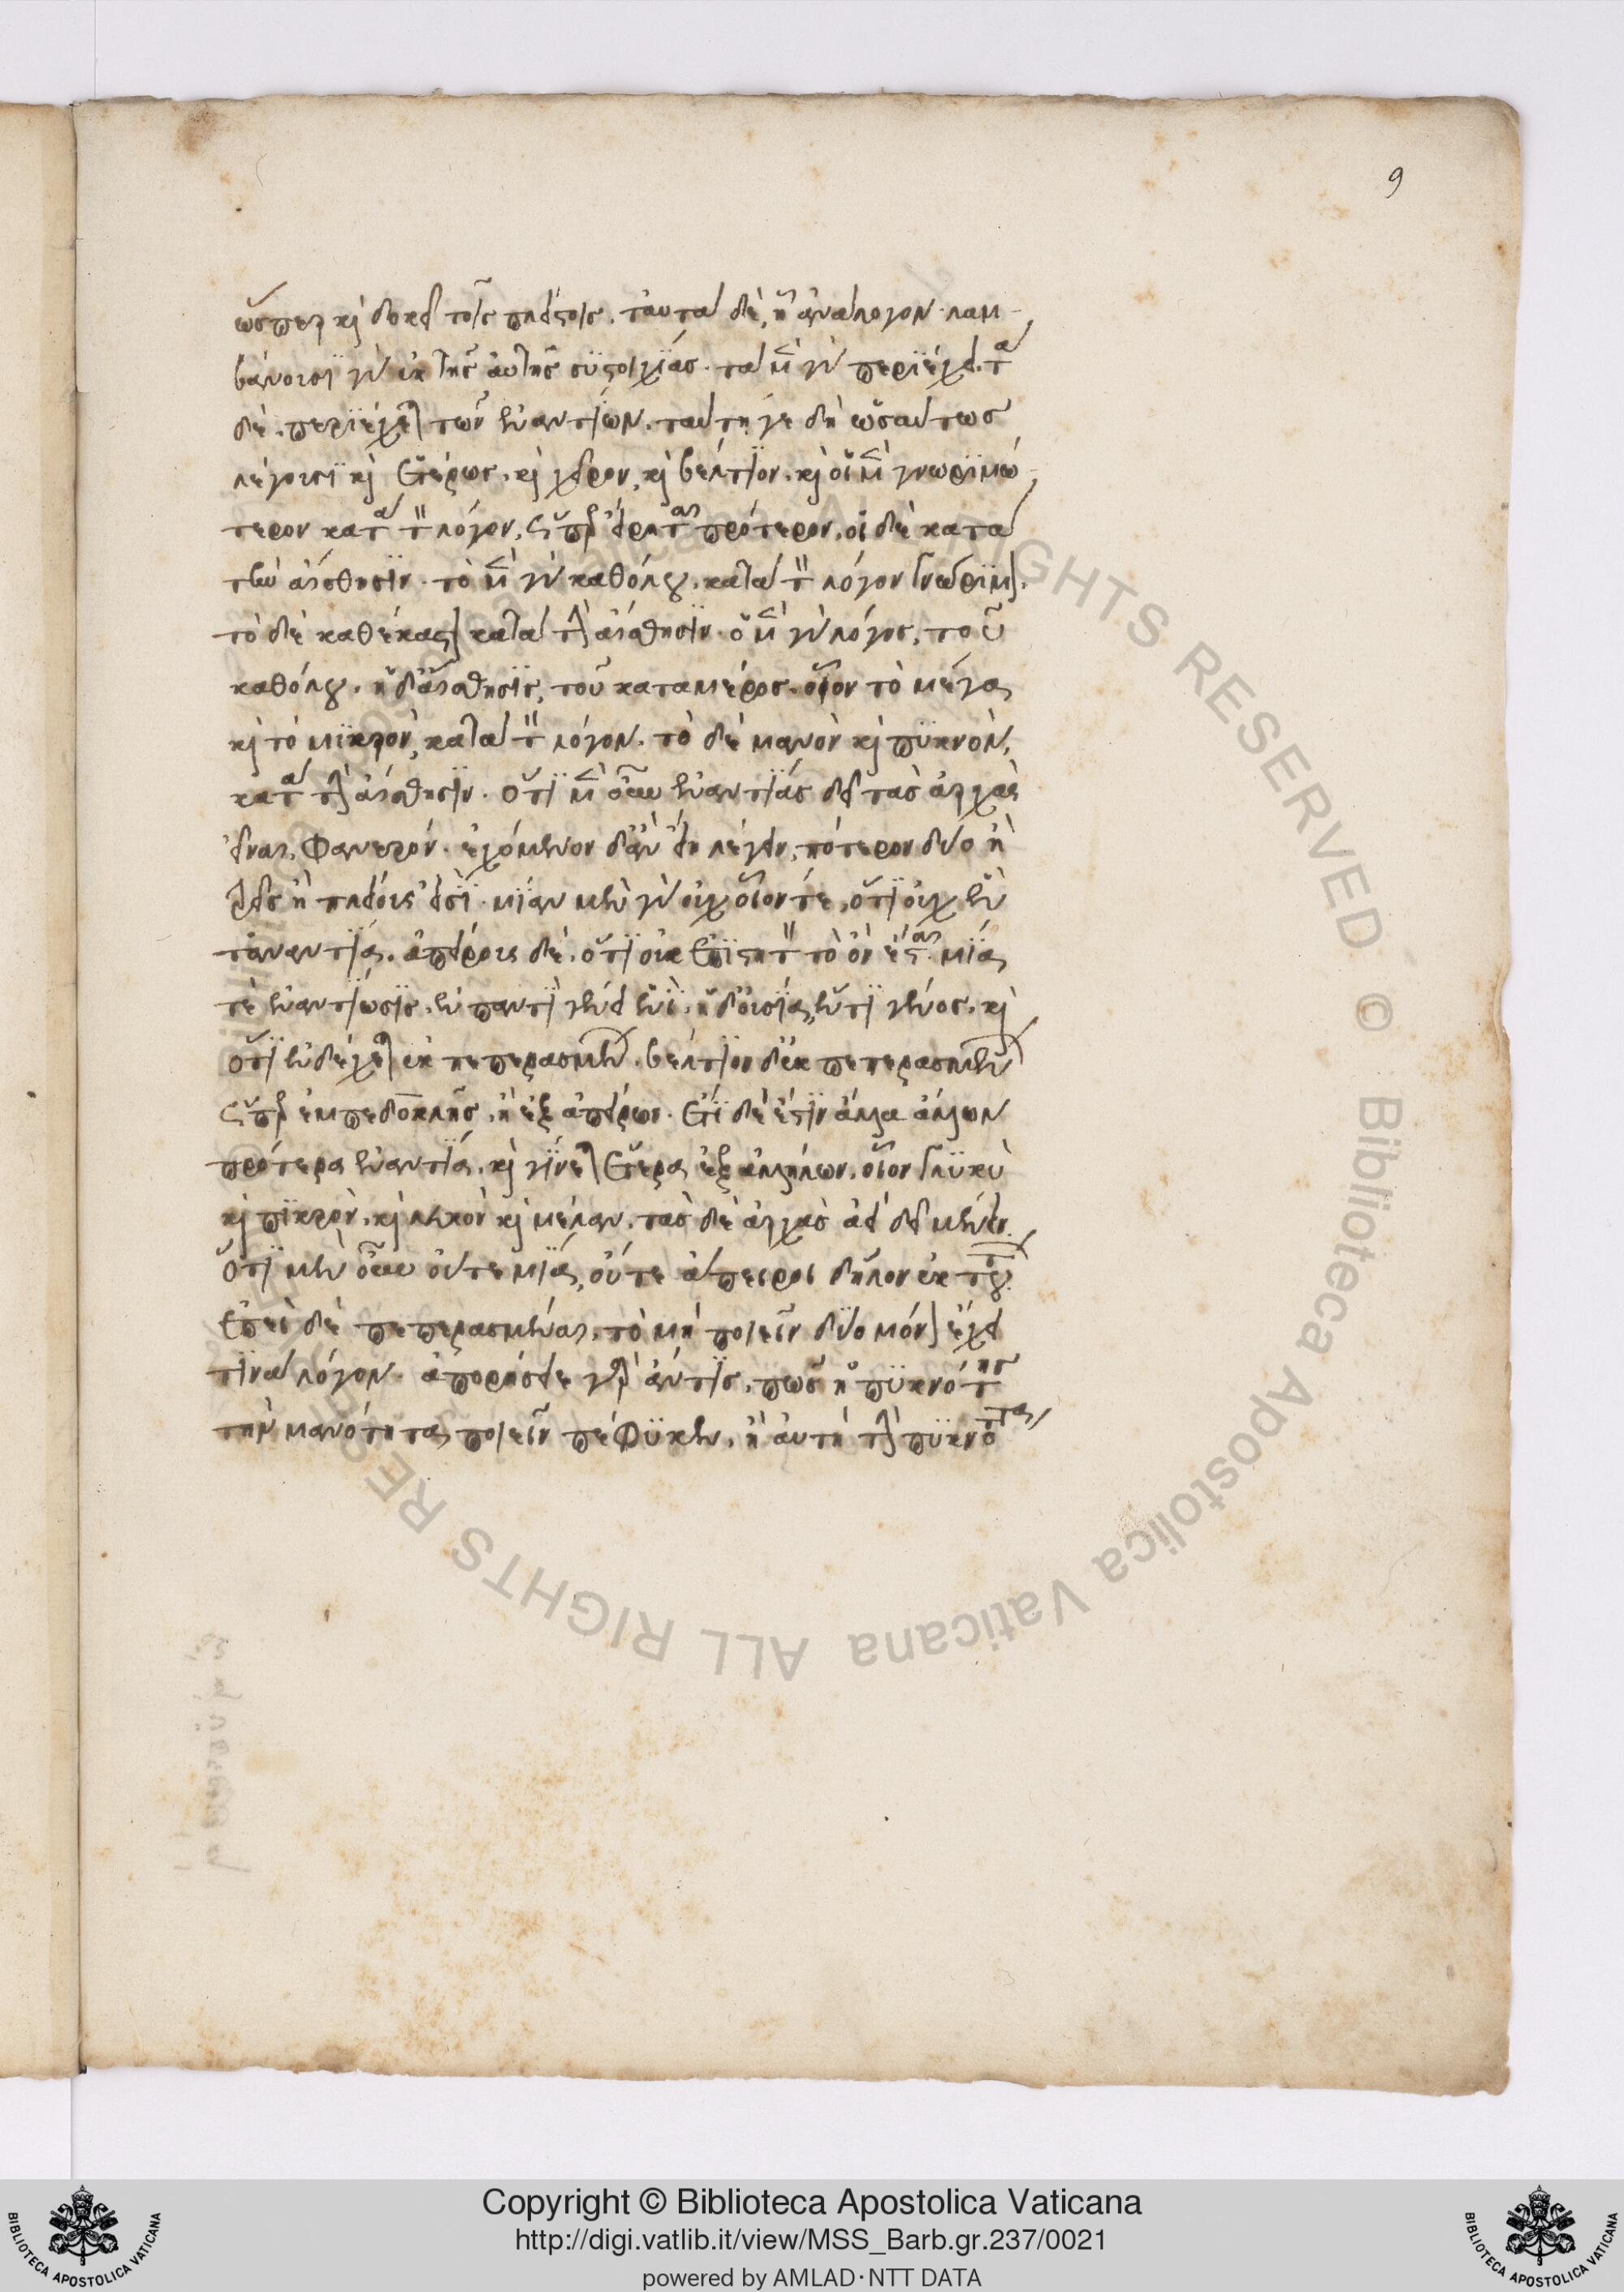 9
ὥσπερ καὶ δοκεῖ τοῖς πλείστοις. ταῦτα δὲ, ἢ ἀνάλογον. λαμ-
βάνουσι γὰρ ἐκ τῆς αὐτῆς συστοιχίας. τὰ μὲν γὰρ περιέχει. τὰ
δὲ. περιέχεται τῶν ἐναντίων. ταύτη γε δὴ ὡσαύτως
λέγουσι καὶ ἑτέρως. καὶ χεῖρον, καὶ βέλτιον. καὶ οἱ μὲν γνωριμώ-
τερον κατὰ τὸν λόγον, ὥσπερ εἴρηται πρότερον. οἱ δὲ κατὰ
τὴν αἴσθησιν. τὸ μὲν γὰρ καθόλου. κατὰ τὸν λόγον γνώριμον.
τὸ δὲ καθέκαστον κατὰ τὴν αἴσθησιν. ὁ μὲν γὰρ λόγος, τοῦ
καθόλου. ἡ δ' αἴσθησις, τοῦ καταμέρος. οἷον τὸ μέγα
καὶ τὸ μικρὸν, κατὰ τὸν λόγον. τὸ δὲ μανὸν καὶ πυκνὸν,
κατὰ τὴν αἴσθησιν. ὅτι μὲν οὖν ἐναντίας δεῖ τὰς ἀρχὰς
εἶναι, φανερόν. ἐχόμενον δ' ἂν εἴη λέγειν, πότερον δύο ἢ
τρεῖς ἢ πλείους εἰσί. μίαν μὲν γὰρ οὐχ οἷόν τε, ὅτι οὐχ ἓν
τἀναντία. ἀπείρους δὲ. ὅτι οὐκ ἐπιστητὸν τὸ ὂν ἔσται. μία
τε ἐναντίωσις. ἐν παντὶ γένει ἑνί. ἡ δ' οὐσία, ἕν τι γένος. καὶ
ὅτι ἐνδέχεται ἐκ πεπερασμένων. βέλτιον δ' ἐκ πεπερασμένων
ὥσπερ ἐμπεδοκλῆς. ἢ ἐξ ἀπείρων. ἔτι δὲ ἔστιν ἄλλα ἄλλων
πρότερα ἐναντία. καὶ γίνεται ἕτερα ἐξ ἀλλήλων. οἷον γλυκὺ
καὶ πικρὸν, καὶ λευκὸν καὶ μέλαν. τὰς δὲ ἀρχὰς ἀεὶ δεῖ μένειν.
ὅτι μὲν οὖν οὔτε μία, οὔτε ἄπειροι δῆλον ἐκ τούτων.
ἐπεὶ δὲ πεπερασμέναι. τὸ μὴ ποιεῖν δύο μόνον ἔχει
τινὰ λόγον. ἀπορήσειε γὰρ ἄν τις. πῶς ἡ πυκνότης
τὴν μανότητα ποιεῖν πέφυκεν. ἢ αὐτὴ τὴν πυκνότητα
Copyright © Biblioteca Apostolica Vaticana
http://digi.vatlib.it/view/MSS_Barb.gr.237/0021
powered by AMLAD·NTT DATA